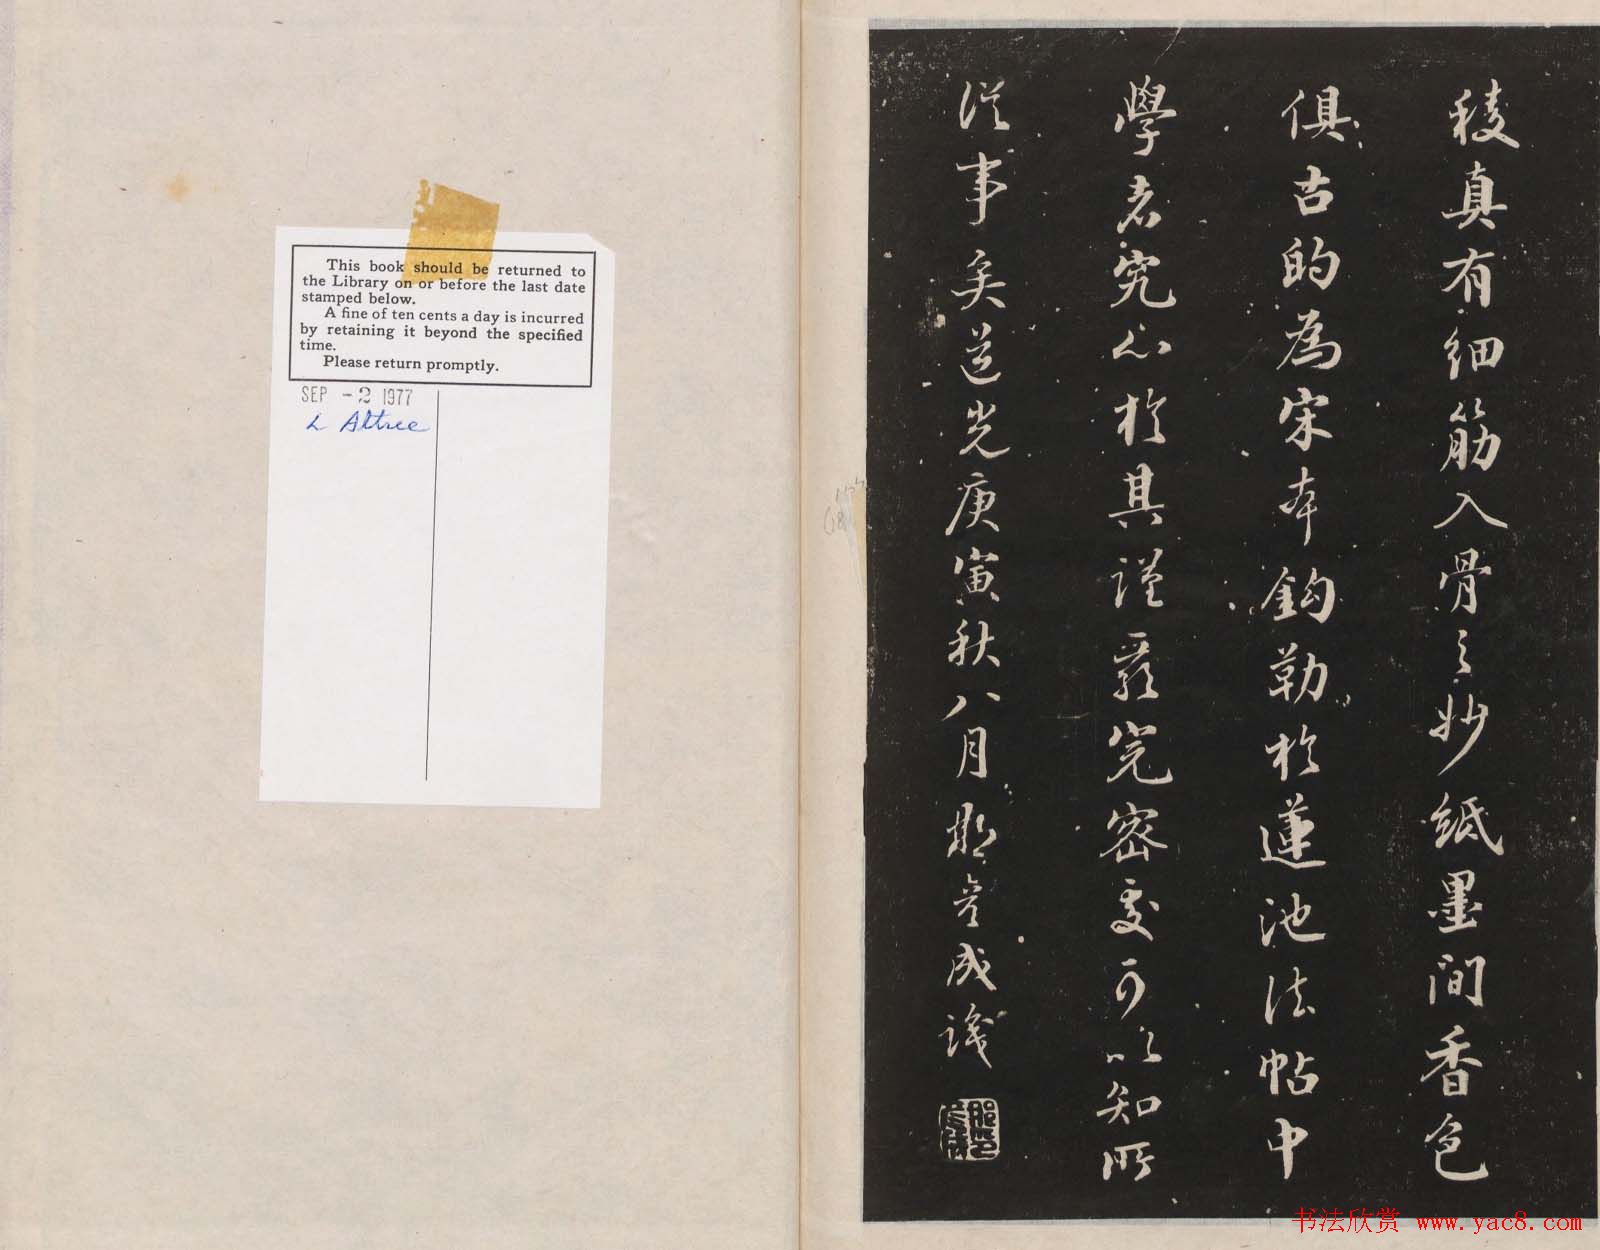 This book should be returned to
the Library on or before the last date
stamped below.
A fine of ten cents a day is incurred
by retaining it beyond the specified
time.
Please return promptly.
SEP -2 1977
L Altree
稜真有細筋入骨之妙紙墨間香色
俱古的為宋本鈎勒於蓮池法帖中
學者究心於其謹嚴完密處可以知所
從事矣道光庚寅秋八月那彥成識
书法欣赏 www.yac8.com